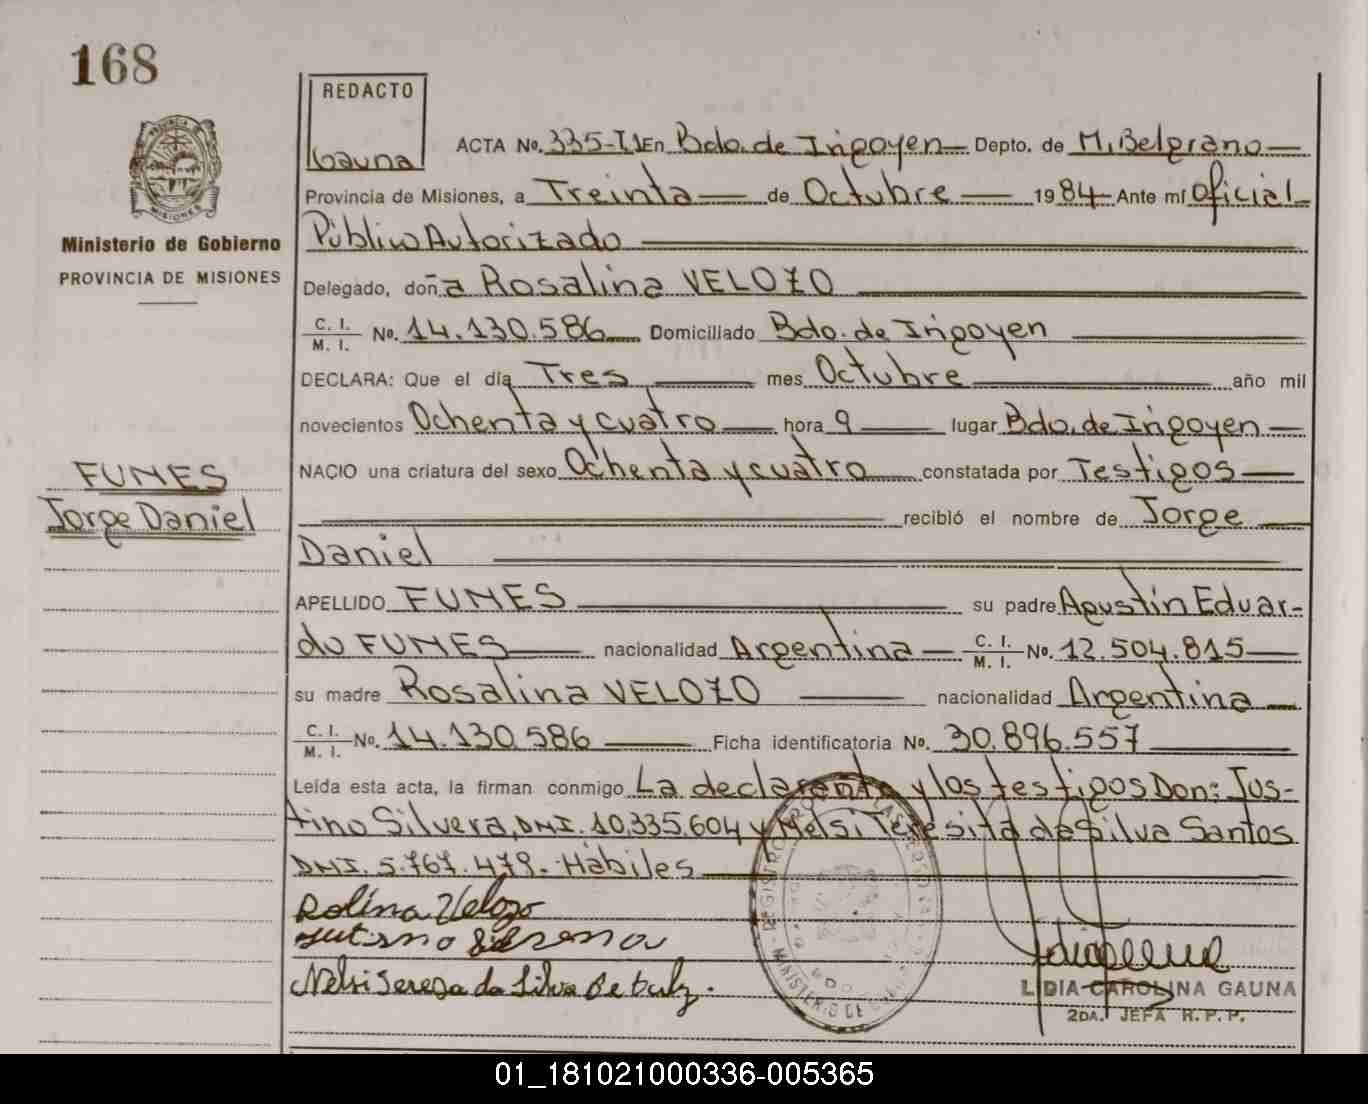 168
REDACTO
Gauna
ACTA No. 335-I1 En Bdo. de Irigoyen Depto. de M. Belgrano
Provincia de Misiones, a Treinta de Octubre 1984 Ante mí Oficial
Público Autorizado
PROVINCIA DE
MISIONES
Ministerio de Gobierno
PROVINCIA DE MISIONES
Delegado, doña Rosalina VELOZO
C. I.
M. I. No. 14.130.586 Domiciliado Bdo. de Irigoyen
DECLARA: Que el día Tres mes Octubre año mil
novecientos Ochenta y cuatro hora 9 lugar Bdo. de Irigoyen
NACIO una criatura del sexo Ochenta y cuatro constatada por Testigos
FUNES
Jorge Daniel
recibió el nombre de Jorge
Daniel
APELLIDO FUNES su padre Agustín Eduar-
do FUNES nacionalidad Argentina C. I. M. I. No. 12.504.815
su madre Rosalina VELOZO nacionalidad Argentina
C. I. M. I. No. 14.130.586 Ficha identificatoria No. 30.896.557
Leída esta acta, la firman conmigo La declarante y los testigos Don: Jus-
tino Silvera, DNI. 10.335.604 y Nelsi Teresita da Silva Santos
DNI. 5.767.479.- Hábiles
Rolina Velozo
Nelsi Teresa da Silva
LIDIA CAROLINA GAUNA
2DA. JEFA R. P. P.
REGISTRO PROVINCIAL DE LAS PERSONAS
MINISTERIO DE GOBIERNO
01_181021000336-005365